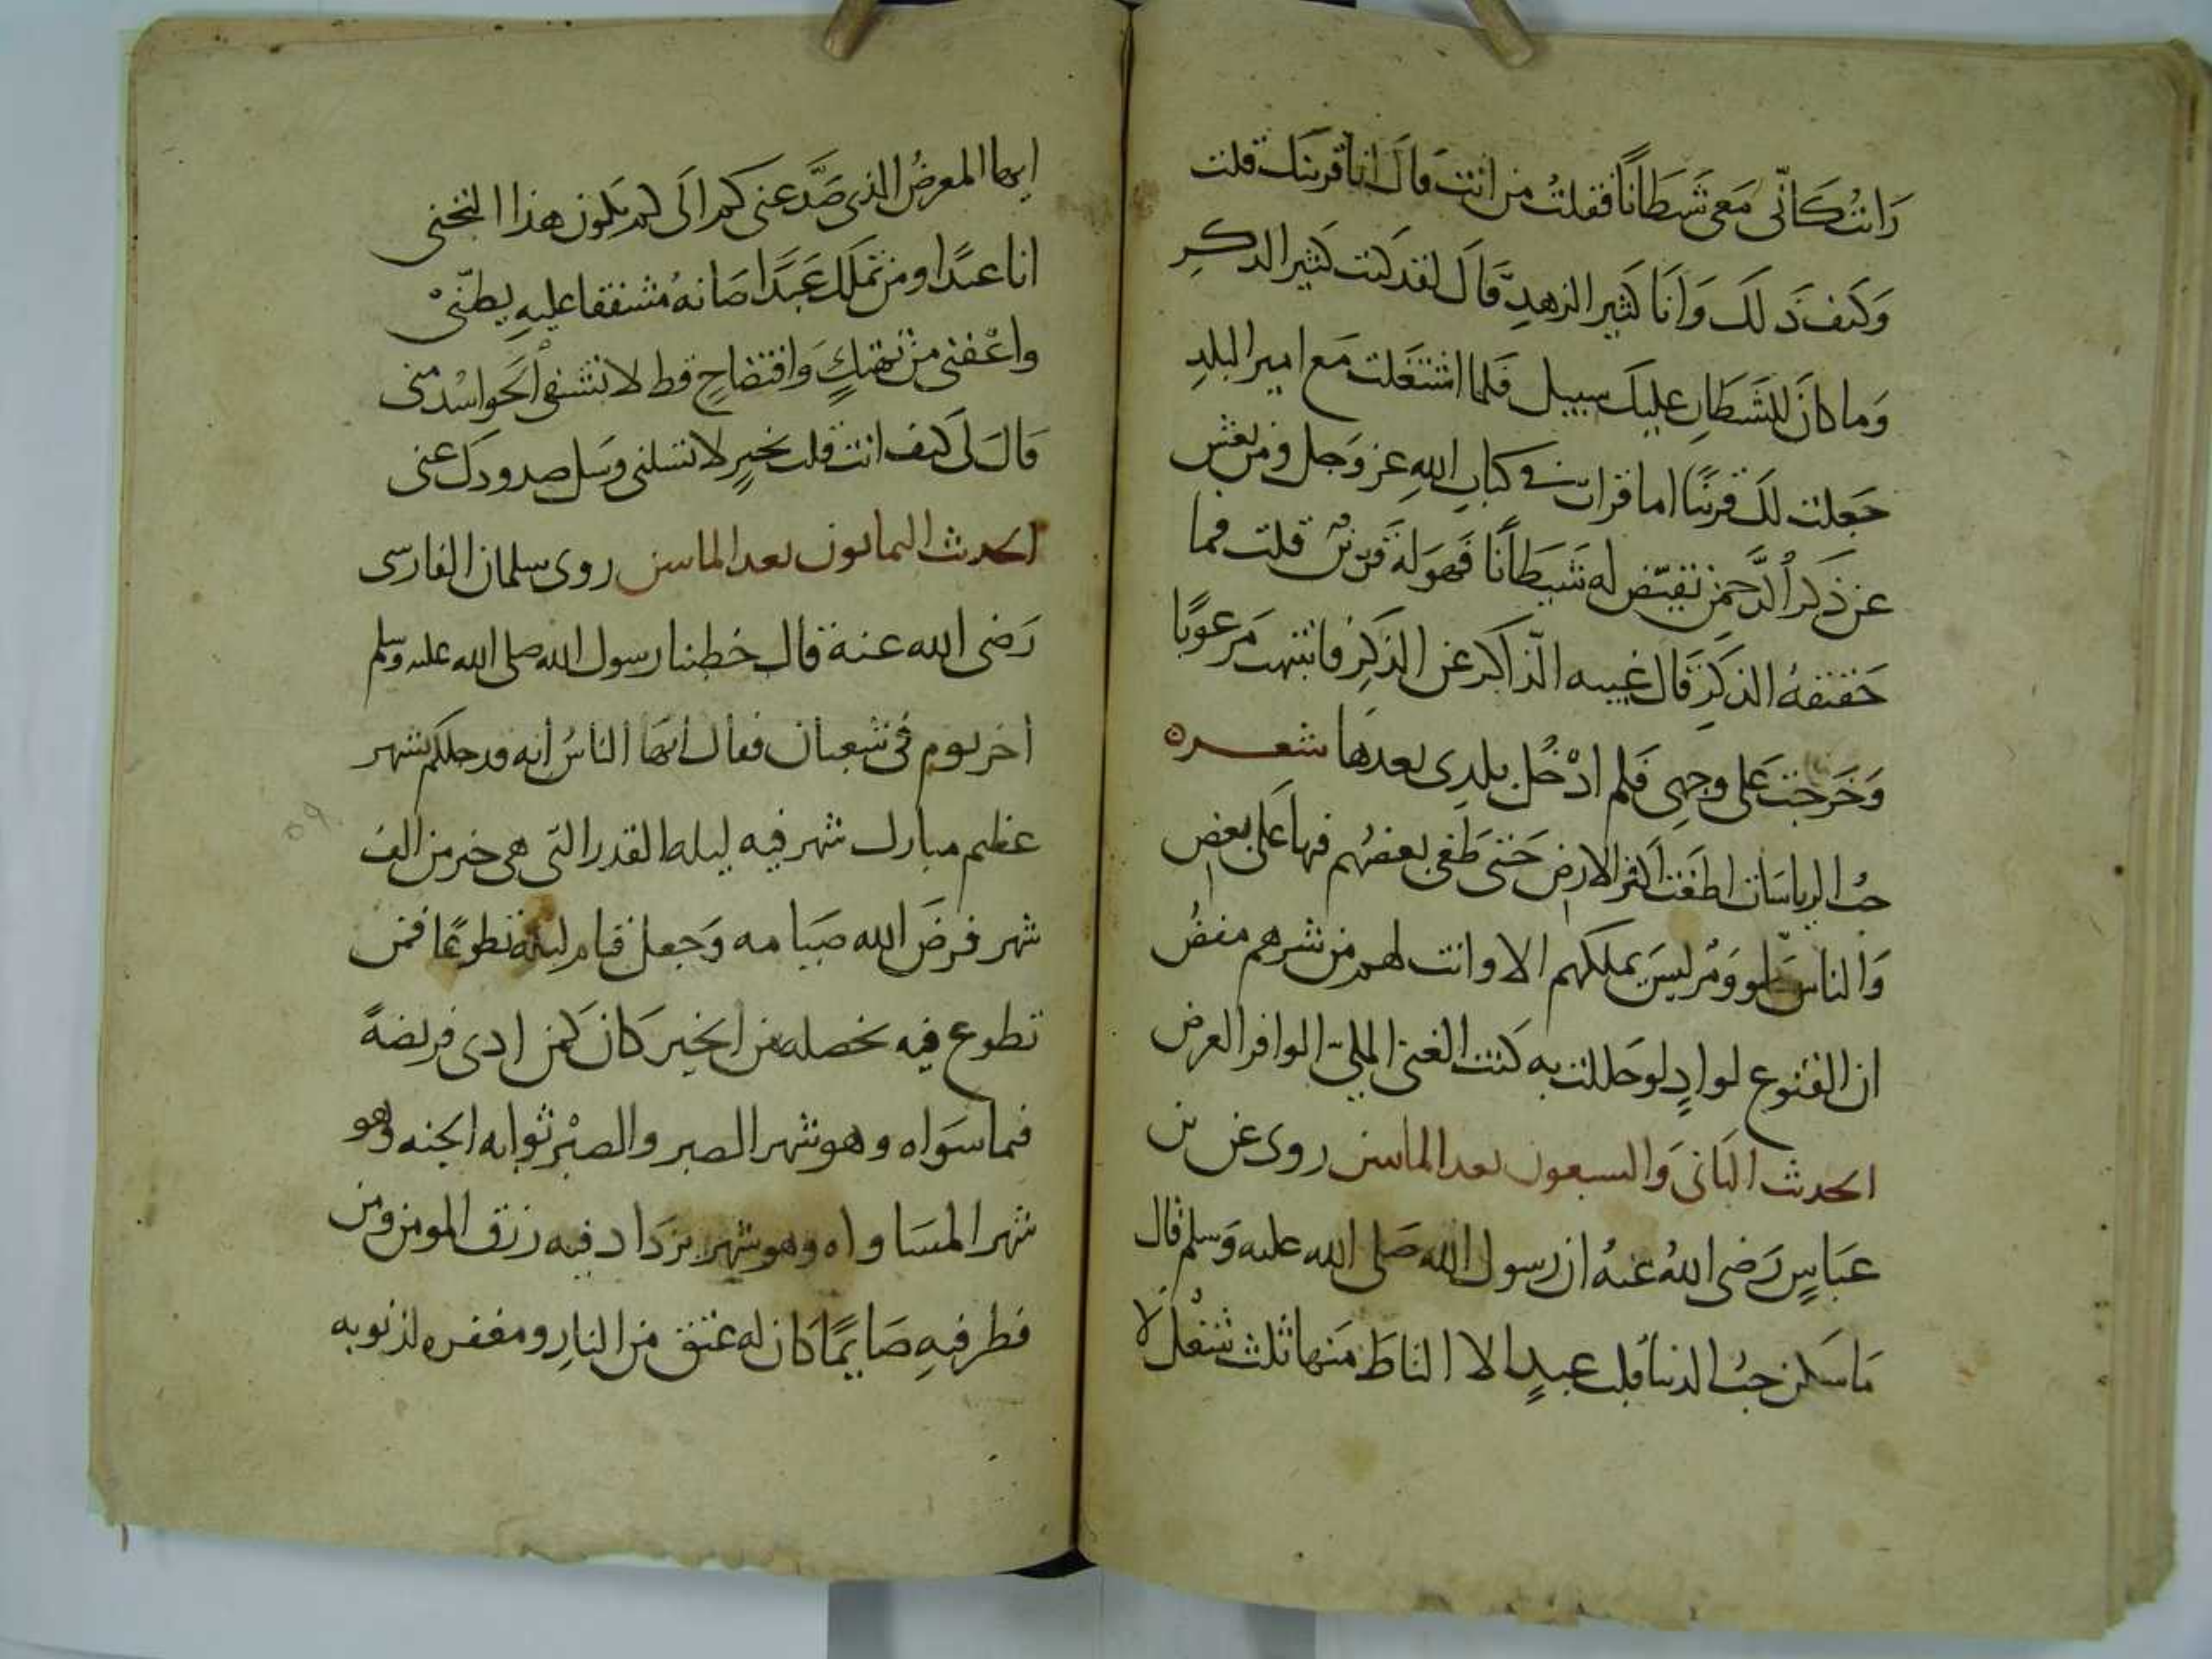 رَايتُ كَانّى مَعى شَيطَانًا فقلتُ من انت قالَ انا قرينك قلت
وَكيف ذَلكَ وَانَا كثير الزهدِ قالَ لقد كنت كثير الذكرِ
وَما كانَ للشَيطَانِ عليكَ سبيل فلما اشتغلت مَع امير البلدِ
جَعلت لكَ قرينًا اما قرات فى كتابِ اللهِ عز وَجل ومن يعش
عن ذكر الرَّحمن نقيّض له شَيطَانًا فهوَ لهَ قرين قلت فما
حَقيقهُ الذكرِ قالَ غيبه الذاكر عن الذكرِ فانتبهت مَرعوبًا
وَخَرجت عَلى وجهى فلم ادْخُل بلدِى بعدهَا شعره
حبُ الرياسَات اطغت اكثر الارض حَتى طَغى بعضهُم فيها عَلى بعض
وَالناس ومن ليسَ يملكهم الا وانت لهم من شرهم مغضُ
ان القنوع لوادٍ لو حَللت به كنت الغنى الملى الوافر العرض
الحديث الثانى وَالسبعون بعد المايتين روى عن بن
عَباسٍ رَضى اللهُ عنهُ ان رسول الله صَلى الله عليه وَسلم قال
مَا سَكن حبُ الدنيا قلب عبدٍ الا التاطَ منها ثلث شغْل لا
ايها المعرضُ الذى صَدَّ عنى كم الى كم يكون هذا التجنى
انا عبدًا ومن تملك عَبدًا صَانهُ مشفقا عليهِ يظنّىْ
واعْفنى من تهتكٍ وَافتضاحٍ قط لا تشفى الحَواسْد منى
قالَ لى كيف انت قلت بخيرٍ لا تسلنى وَسل صدودكَ عنى
الحديث الثمانون بعد المايتين روى سلمان الفارسى
رَضى الله عنه قال خطبنا رسول الله صلى الله عليه وسلم
اخر يوم فى شعبان فقال ايها الناسُ انه قد حلكم شهر
عظيم مبارك شهر فيه ليله القدر التى هى خير من الف
شهر فرضَ الله صَيامه وَجعل قيام ليله تطوعًا فمن
تطوع فيه بخصله من الخير كان كمن ادى فريضهً
فما سَواه وهو شهر الصبر والصبْر ثوابه الجنه وهو
شهر المسَاواه وهو شهر يزدَاد فيه رزق المومن ومن
فطر فيهِ صَايمًا كان له عتق من النارِ ومغفره لذنوبه